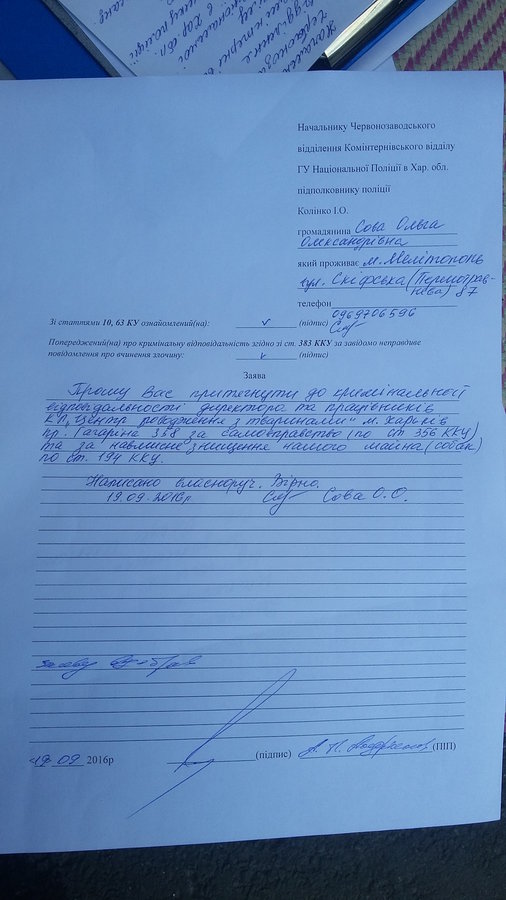 Начальнику Червонозаводського
відділення Комінтернівського відділу
ГУ Національної Поліції в Хар. обл.
підполковнику поліції
Колінко І.О.
громадянина Сова Ольга
Олександрівна
який проживає м. Мелітополь
вул. Скіфська (Першотрав-
нева) 87
телефон
0969706596
Зі статтями 10, 63 КУ ознайомлений(на): v (підпис)
Попереджений(на) про кримінальну відповідальність згідно зі ст. 383 ККУ за завідомо неправдиве
повідомлення про вчинення злочину: v (підпис)
Заява
Прошу Вас притягнути до кримінальної
відповідальності директора та працівників
КП "Центр поводження з тваринами" м. Харьків
пр. Гагаріна 358 за самоправство (по ст 356 ККУ)
та за навмисне знищення нашого майна (собак)
по ст. 194 ККУ.
Написано власноруч. Вірно.
19.09.2016р Сова О.О.
заяву
19 09 2016р (підпис) (ПІП)